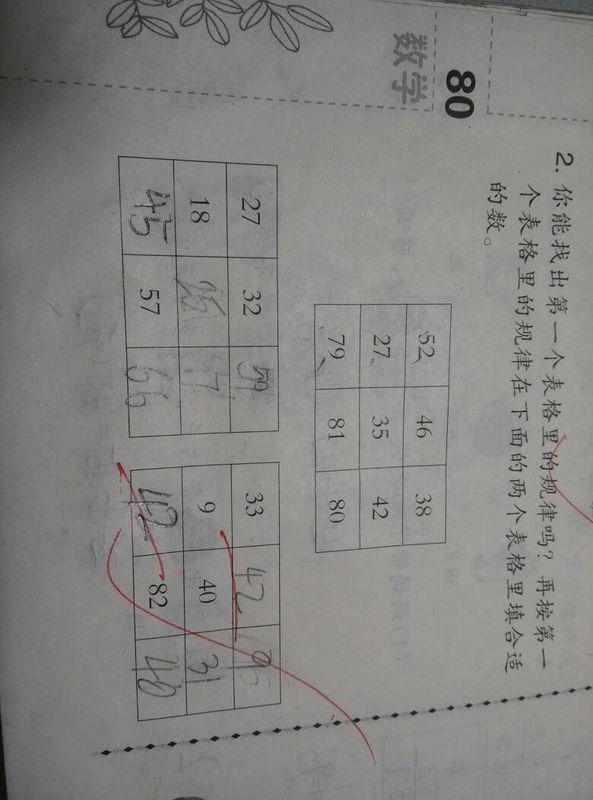 80
数学
2. 你能找出第一个表格里的规律吗？再按第一
个表格里的规律在下面的两个表格里填合适
的数。
52 46 38
27 35 42
79 81 80
27 32 59
18
45 57 66
33 42
9 40 31
42 82 40